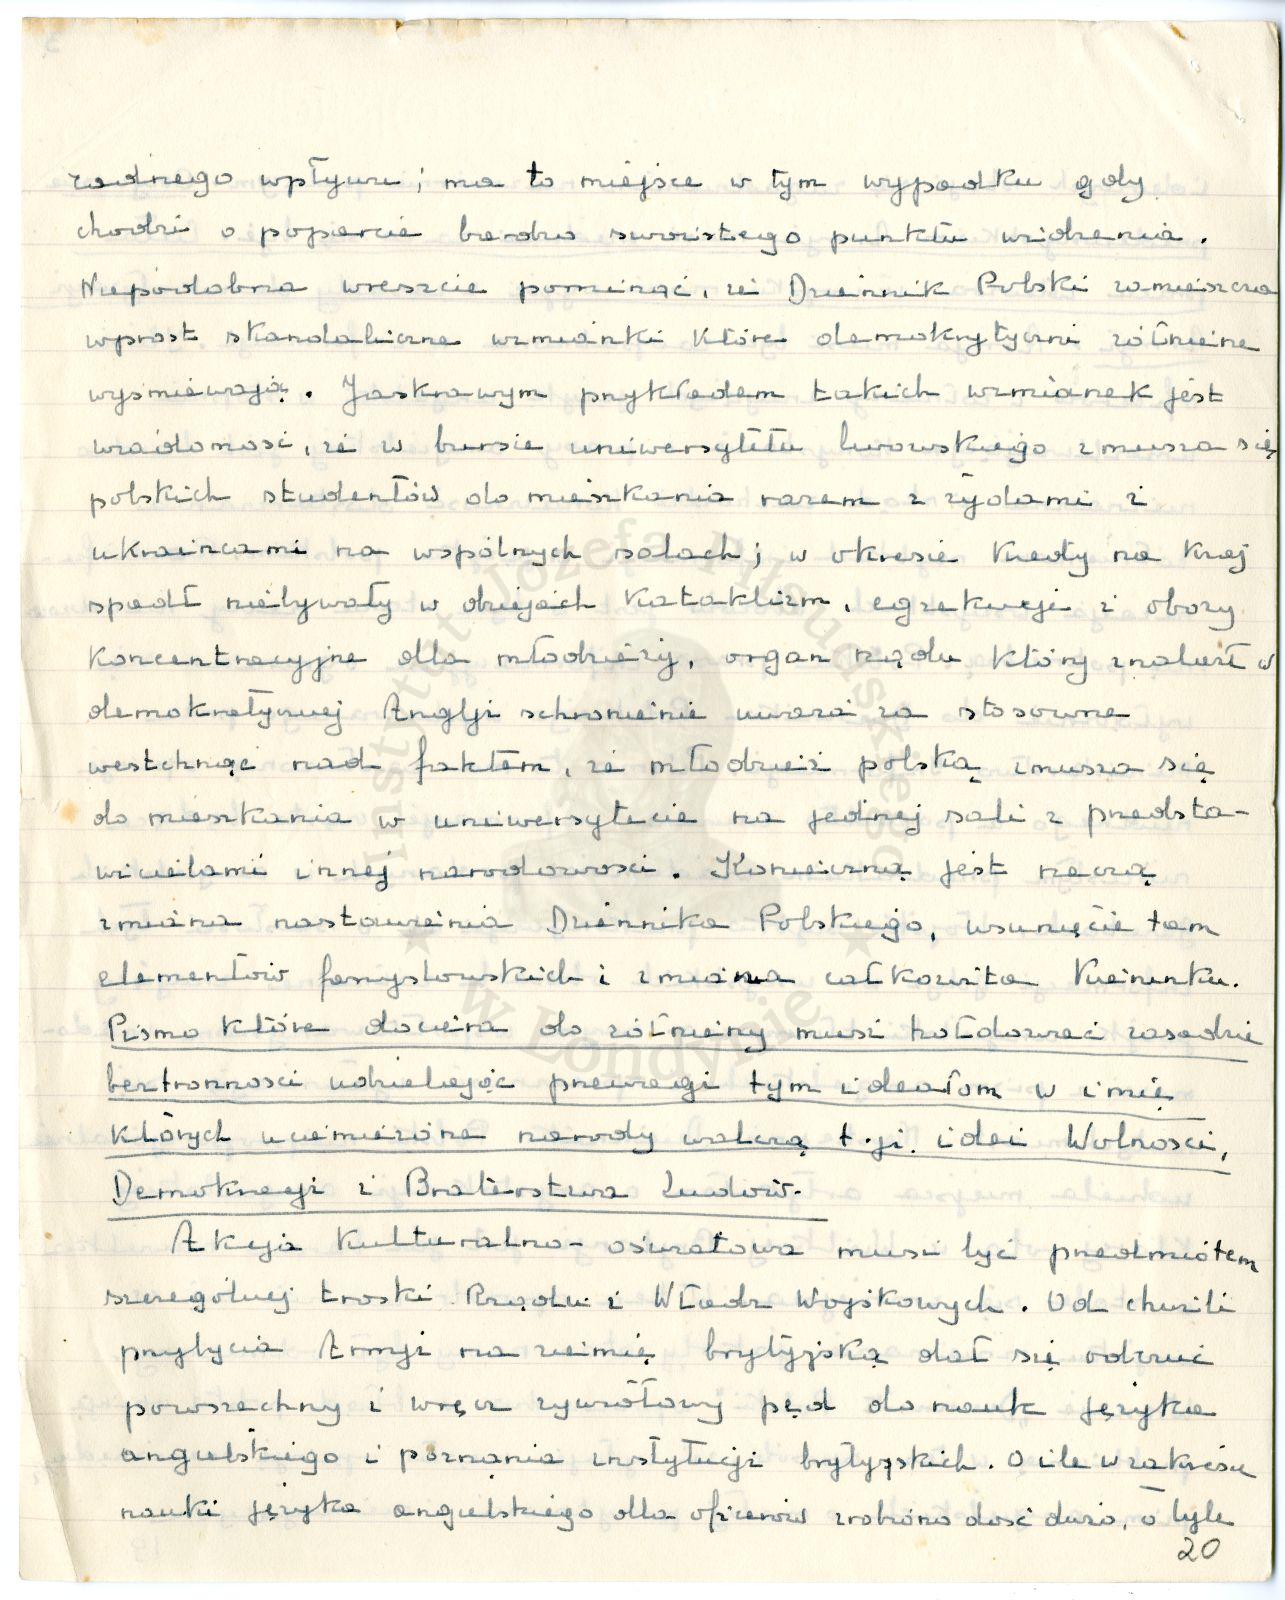 żadnego wpływu; ma to miejsce w tym wypadku gdy
chodzi o poparcie bardzo swoistego punktu widzenia.
Niepodobna wreszcie pominąć, że Dziennik Polski zamieszcza
wprost skandaliczne wzmianki które demokrytyczni żołnierze
wyśmiewają. Jaskrawym przykładem takich wzmianek jest
wiadomość, że w bursie uniwersytetu lwowskiego zmusza się
polskich studentów do mieszkania razem z żydami i
ukraińcami na wspólnych salach; w okresie kiedy na kraj
spadł niebywały w dziejach kataklizm, egzekucje i obozy
koncentracyjne dla młodzieży, organ rządu który znalazł w
demokratycznej Anglji schronienie uważa za stosowne
westchnąć nad faktem, że młodzież polską zmusza się
do mieszkania w uniwersytecie na jednej sali z przedsta-
wicielami innej narodowości. Konieczną jest rzeczą
zmiana nastawienia Dziennika Polskiego, usunięcie tam
elementów famysłowskich i zmiana całkowita kierunku.
Pismo które dociera do żołnierzy musi hołdować zasadzie
beztronności udzielając przewagi tym ideałom w imię
których uciemiężone narody walczą t.j. idei Wolności,
Demokracji i Braterstwa Ludów.
Akcja kulturalno-oświatowa musi być przedmiotem
szczególnej troski Rządu i Władz Wojskowych. Od chwili
przybycia Armji na ziemię brytyjską dał się odczuć
powszechny i wręcz żywiołowy pęd do nauk języka
angielskiego i poznania instytucji brytyjskich. O ile w zakresie
nauki języka angielskiego dla oficerów zrobiono dość dużo, o tyle
20
Instytut Józefa Piłsudskiego
w Londynie